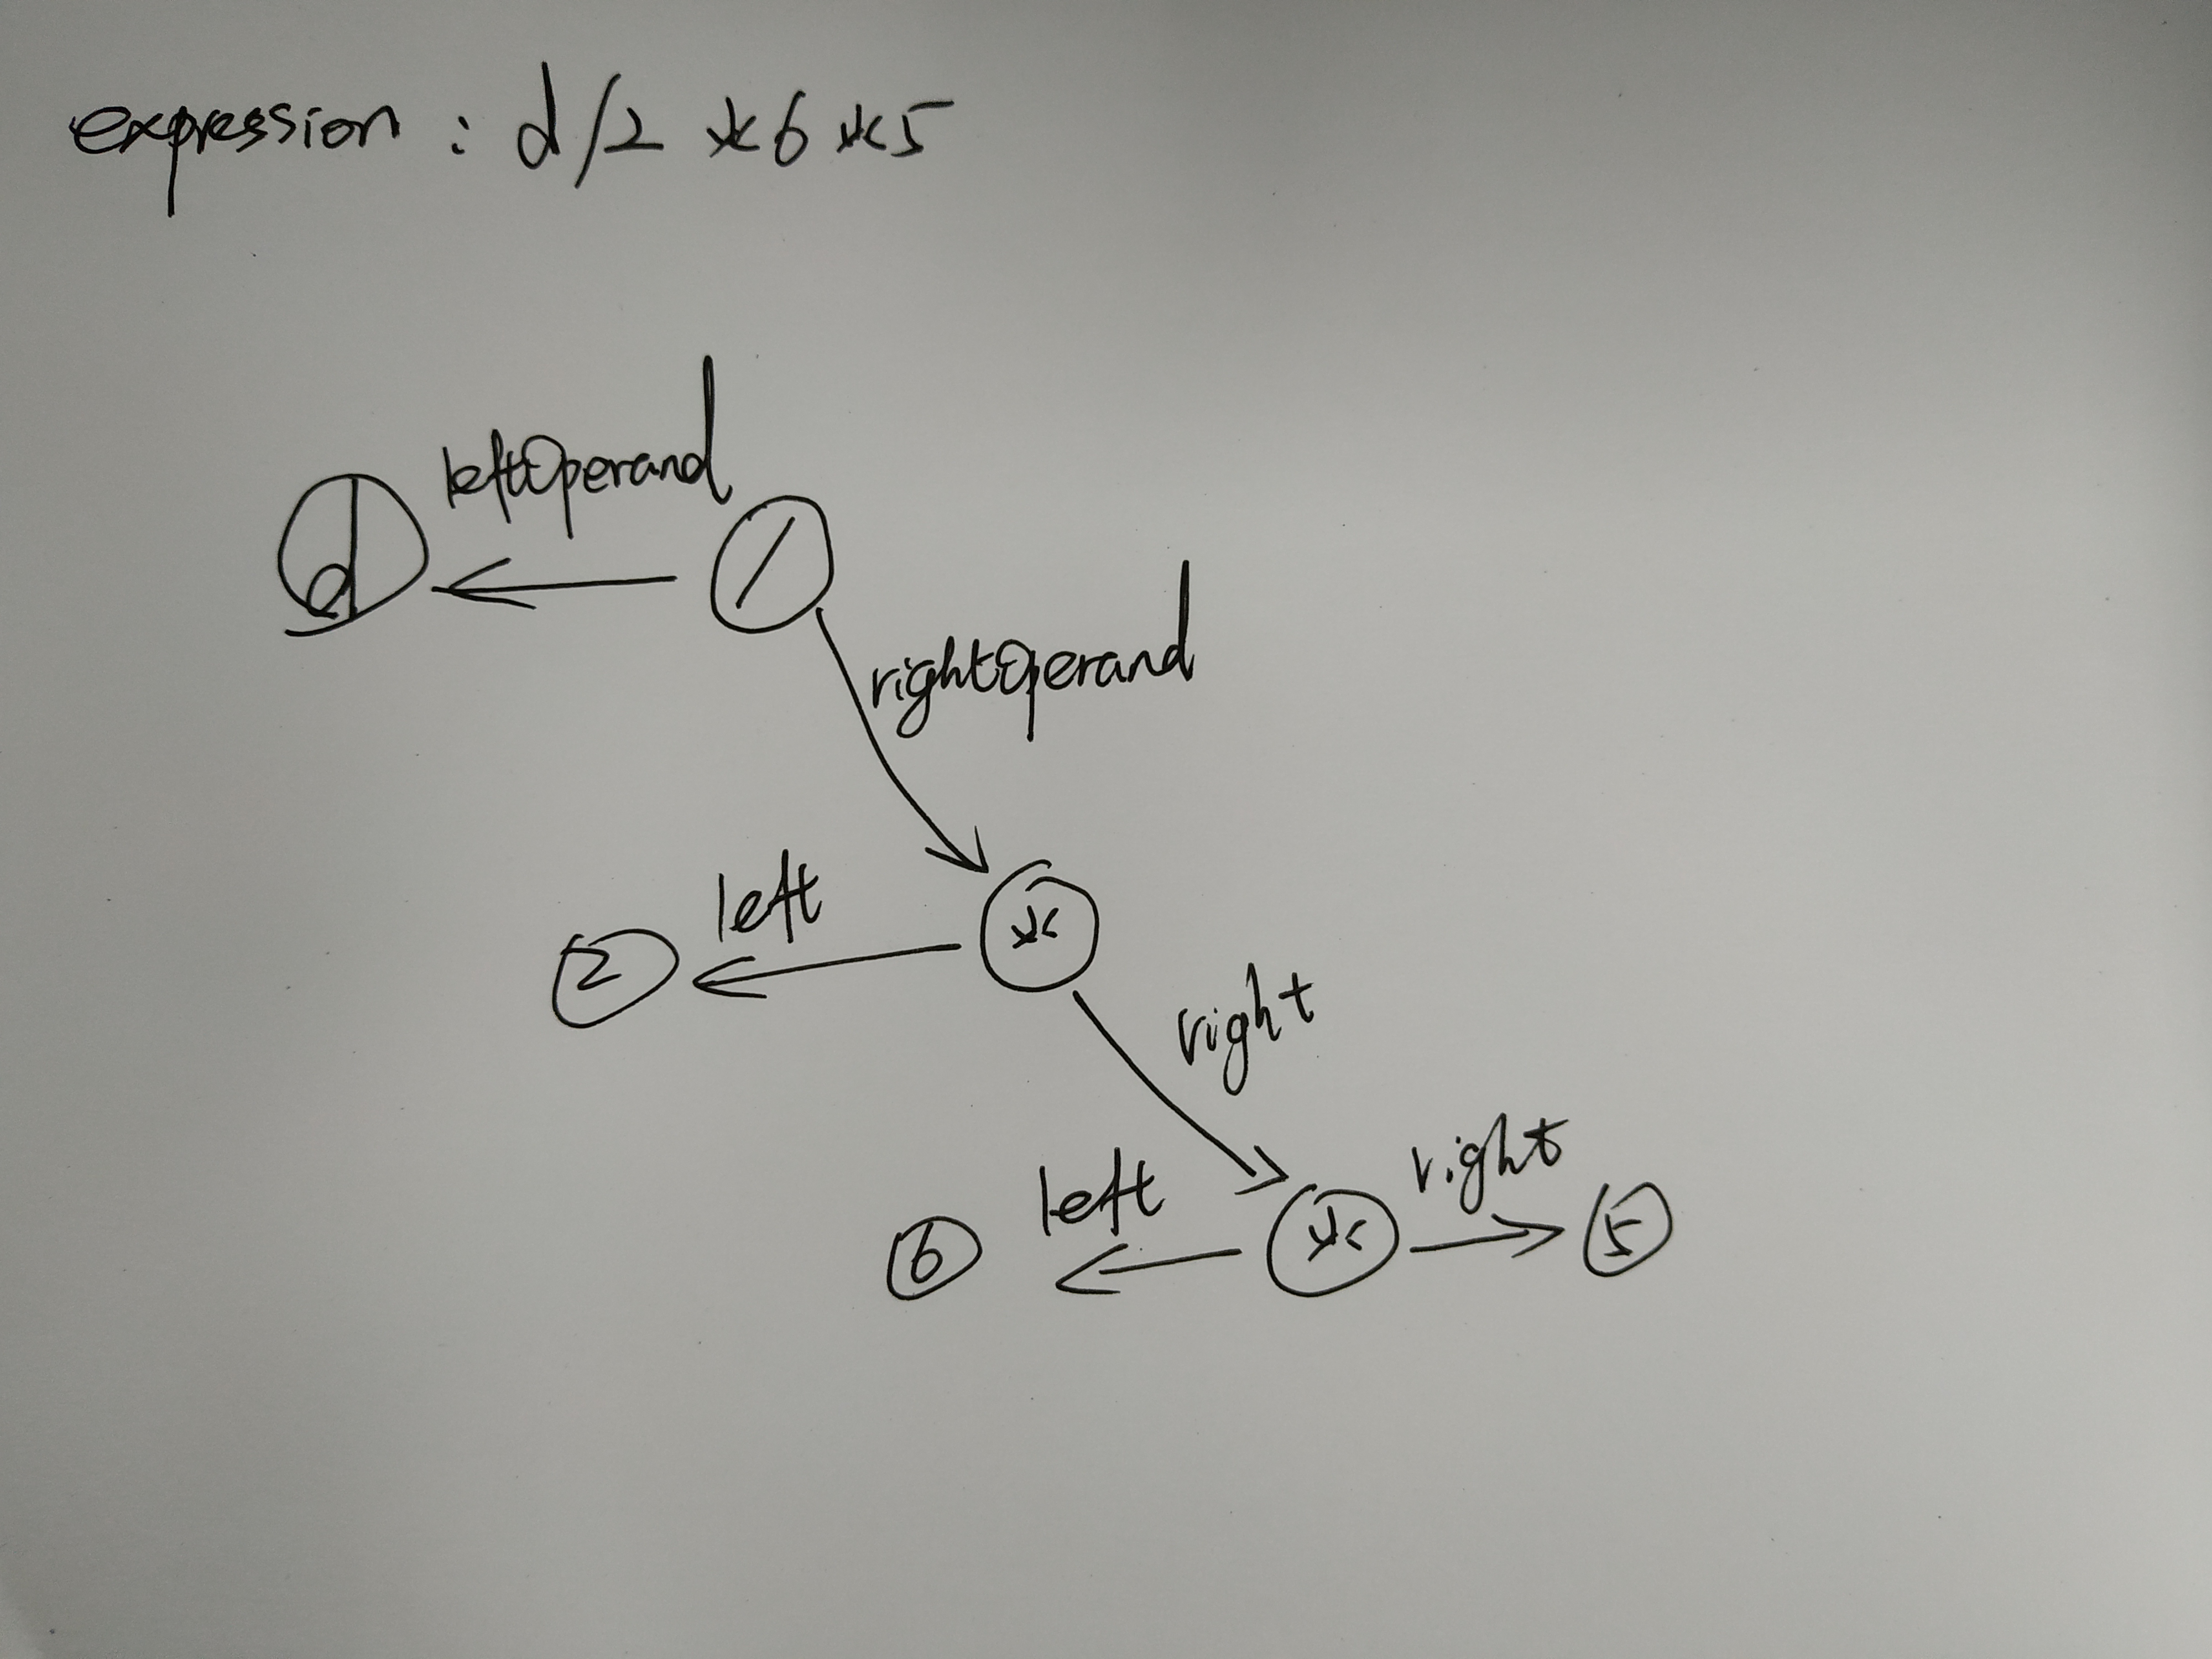 expression : d/2 * 6 * 5
leftOperand
d
/
rightOperand
left
2
*
right
left
6
*
right
5